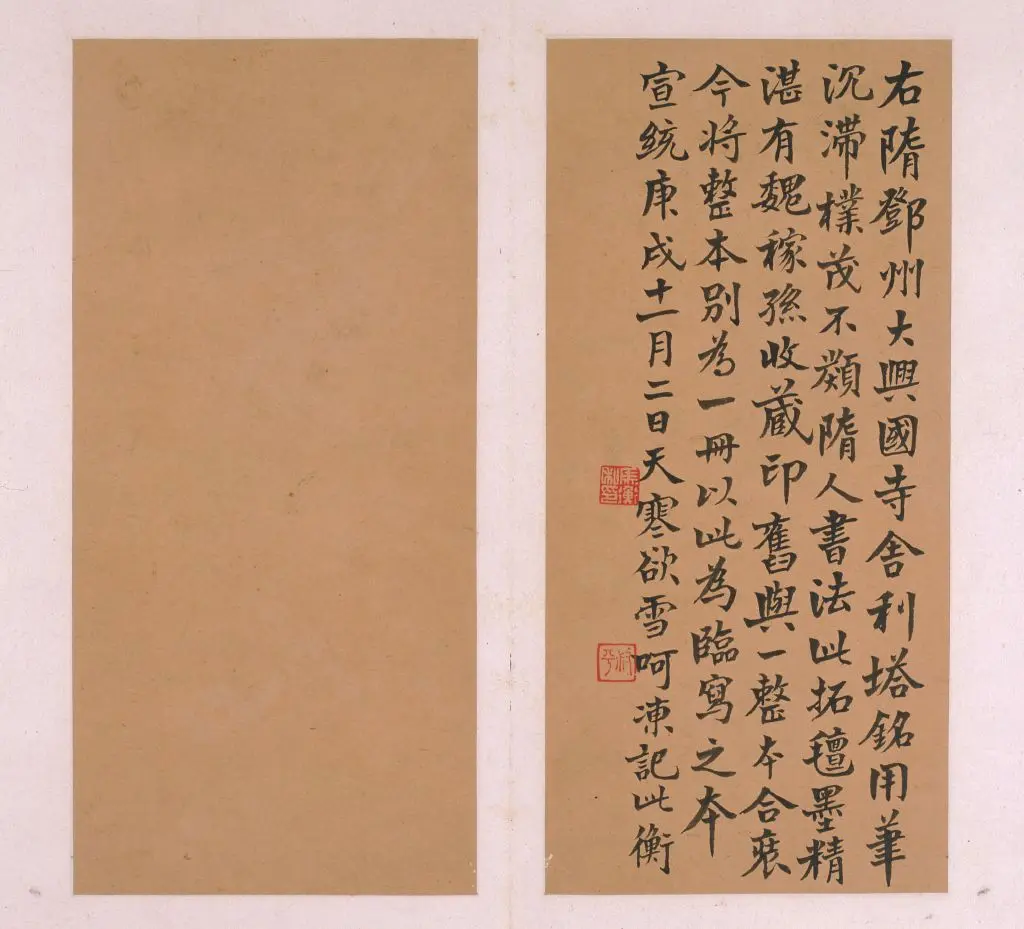 右隋鄧州大興國寺舎利塔銘用筆
沉滯樸茂不類隋人書法此拓氊墨精
湛有魏稼孫收蔵印舊與一整本合裝
今将整本別為一冊以此為臨寫之本
宣統庚戌十一月二日天寒欲雪呵凍記此衡
馬衡